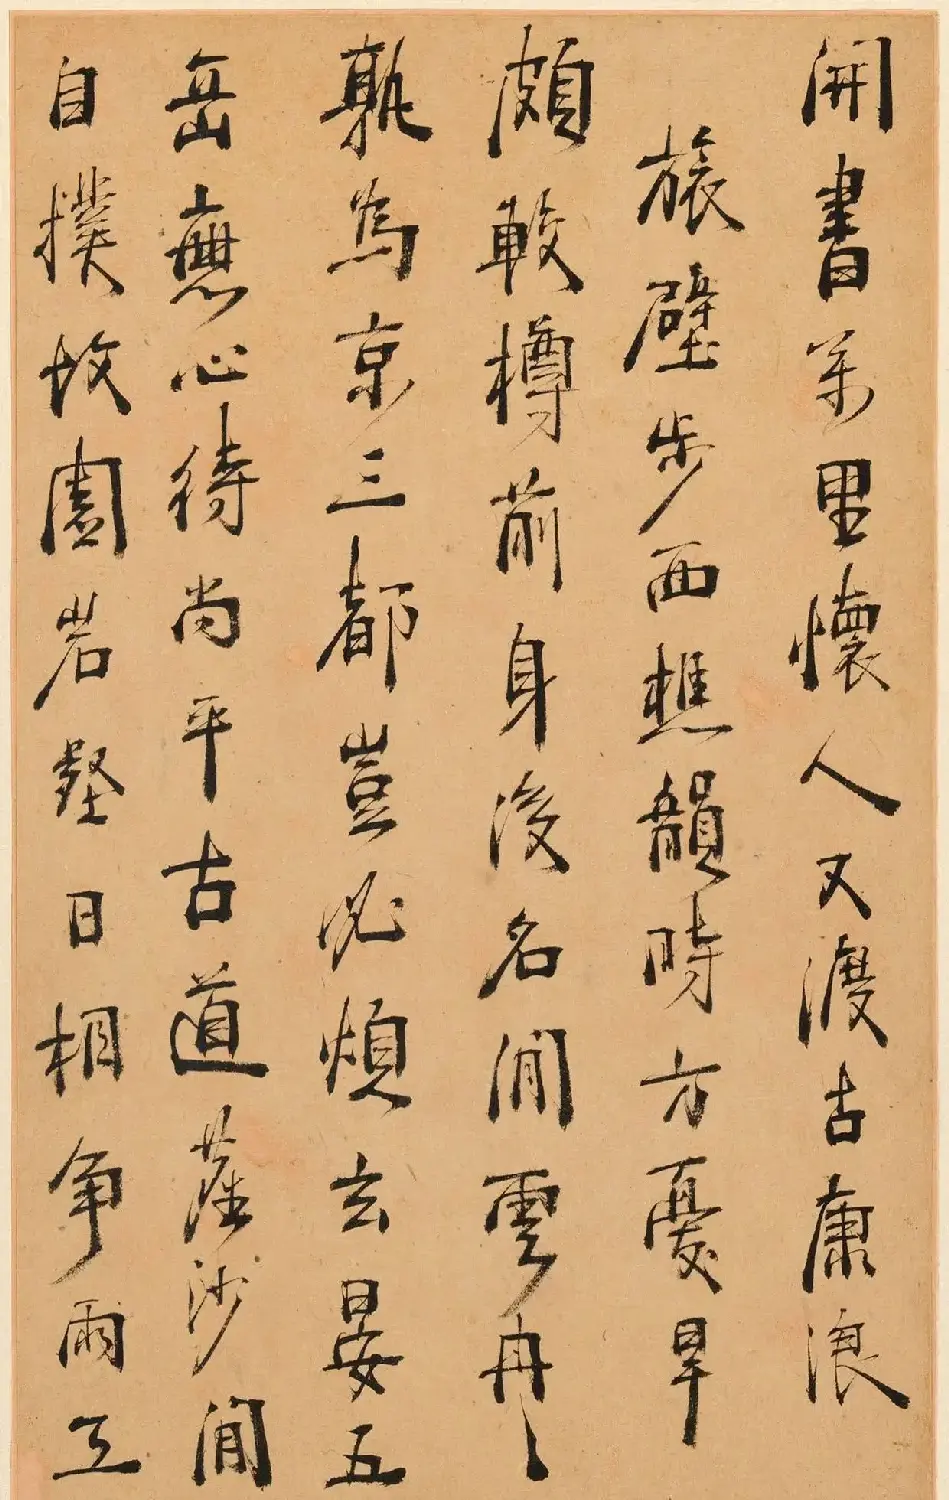 開書萬里懷人又渡古康浪
旅壁步西樵韻時方憂旱
頗敢樽前身後名閒雲冉冉
孰為京三都豈必煩玄晏五
岳應心待尚平古道沙間
自撲故園岩壑日相爭雨工